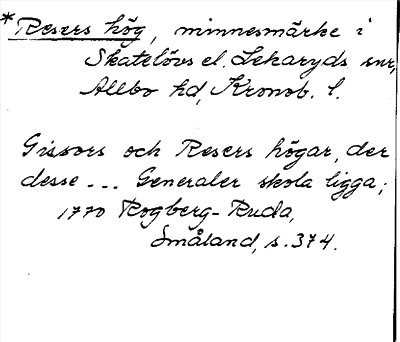 *Resers hög, minnesmärke i
Skatelövs el. Lekaryds snr,
Allbo hd, Kronob. l.
Gissors och Resers högar, der
desse ... Generaler skola ligga;
1770 Rogberg-Ruda,
Småland, s. 374.